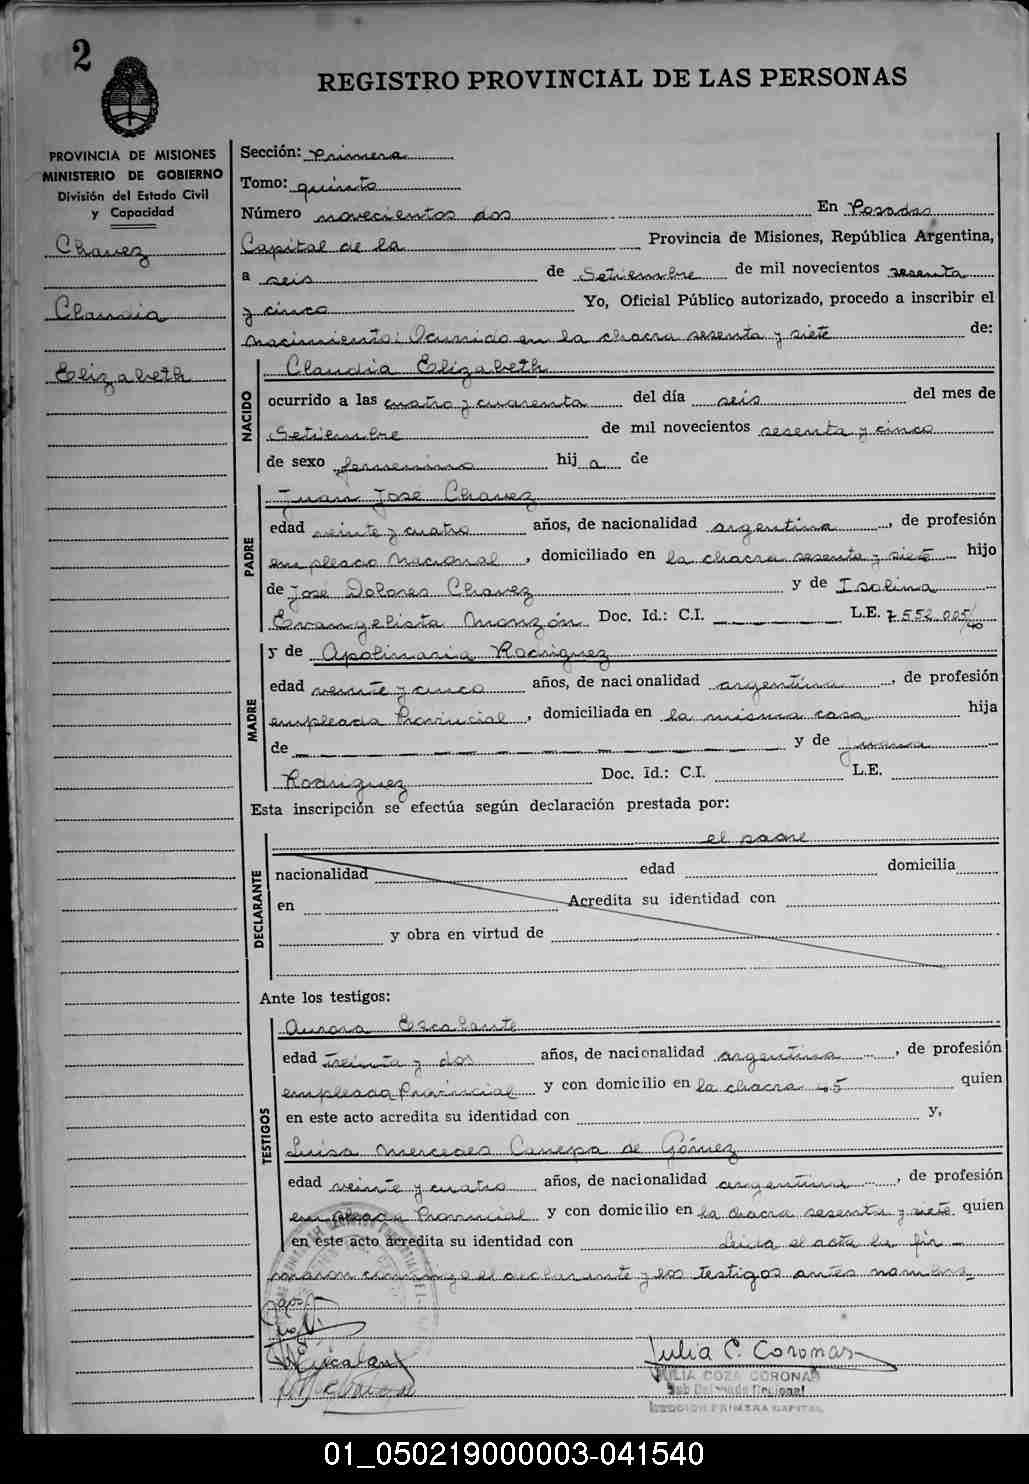 2
REGISTRO PROVINCIAL DE LAS PERSONAS
PROVINCIA DE MISIONES
MINISTERIO DE GOBIERNO
División del Estado Civil
y Capacidad
Chavez
Claudia
Elizabeth
Sección: Primera
Tomo: quinto
Número novecientos dos En Posadas
Capital de la Provincia de Misiones, República Argentina,
a seis de Setiembre de mil novecientos sesenta
y cinco Yo, Oficial Público autorizado, procedo a inscribir el
nacimiento: Ocurrido en la chacra sesenta y siete de:
NACIDO
Claudia Elizabeth
ocurrido a las cuatro y cuarenta del día seis del mes de
Setiembre de mil novecientos sesenta y cinco
de sexo femenino hija de
PADRE
Juan José Chavez
edad veinte y cuatro años, de nacionalidad argentina, de profesión
empleado Nacional, domiciliado en la chacra sesenta y siete hijo
de José Dolores Chavez y de Isolina
Evangelista Monzón Doc. Id.: C.I. L.E. 7.552.005/40
MADRE
y de Apolinaria Rodriguez
edad veinte y cinco años, de nacionalidad argentina, de profesión
empleada Provincial, domiciliada en la misma casa hija
de y de Juana
Rodriguez Doc. Id.: C.I. L.E.
Esta inscripción se efectúa según declaración prestada por:
DECLARANTE
el padre
nacionalidad edad domicilia
en Acredita su identidad con
y obra en virtud de
Ante los testigos:
TESTIGOS
Aurora Escalante
edad treinta y dos años, de nacionalidad argentina, de profesión
empleada Provincial y con domicilio en la chacra 45 quien
en este acto acredita su identidad con y,
Luisa Mercedes Canepa de Gómez
edad veinte y cuatro años, de nacionalidad argentina, de profesión
empleada Provincial y con domicilio en la chacra sesenta y siete quien
en este acto acredita su identidad con Leida el acta la fir-
maron conmigo el declarante y los testigos antes nombra
Julia C. Coronas
JULIA COZA CORONAS
Sub Delegada Regional
SECCION PRIMERA CAPITAL
01_050219000003-041540